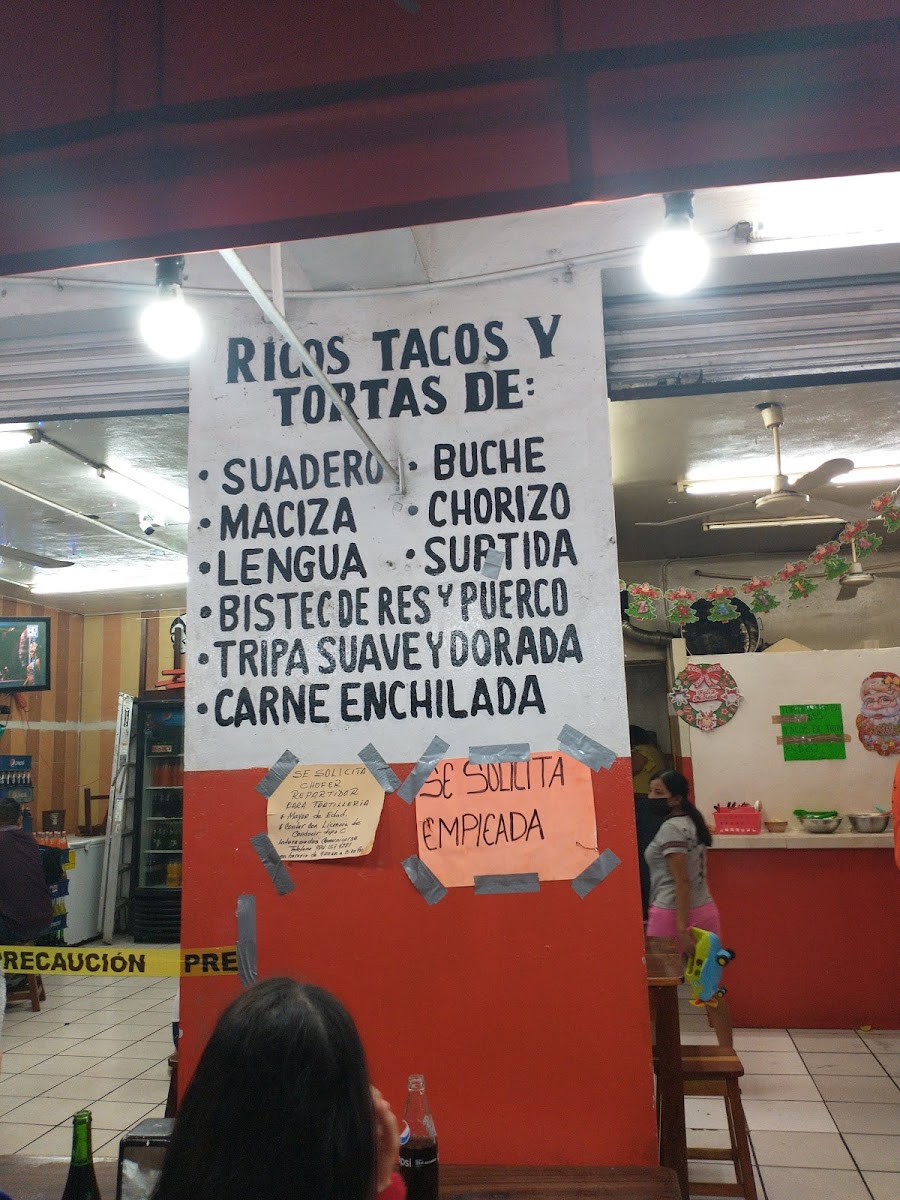 RICOS TACOS Y
TORTAS DE:
• SUADERO
• MACIZA
• LENGUA
• BUCHE
• CHORIZO
• SURTIDA
• BISTEC DE RES Y PUERCO
• TRIPA SUAVE Y DORADA
• CARNE ENCHILADA
SE SOLICITA
CHOFER
REPARTIDOR
PARA TORTILLERIA
Mayor de Edad.
Contar con Licencia de
Conducir tipo C
SE SOLICITA
EMPLEADA
PRECAUCIÓN
PRE
pepsi